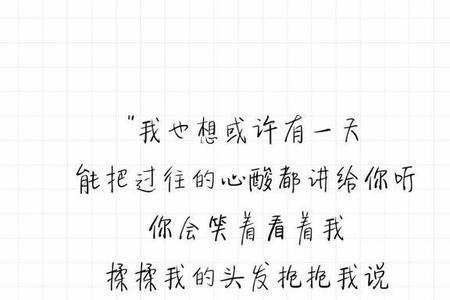 "我也想或许有一天
能把过往的心酸都讲给你听
你会笑着看着我
揉揉我的头发抱抱我说